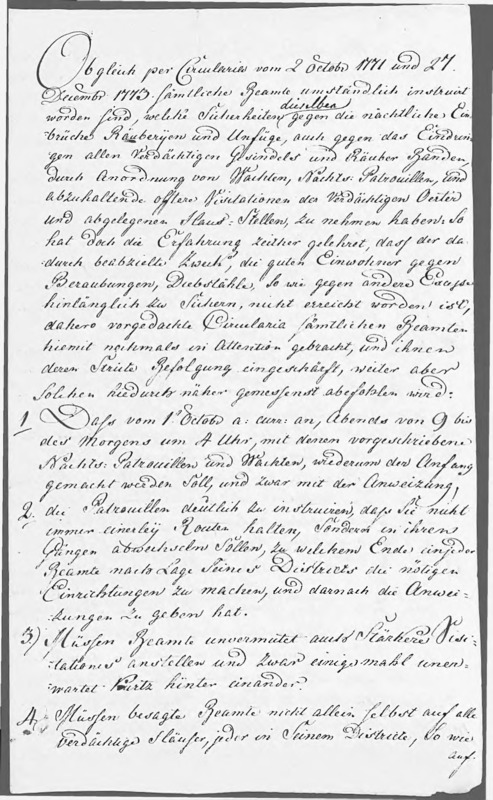 Obgleich per Circularia vom 2 Octobr 1771 und 27.
December 1773 sämtliche Beamte umständlich instruirt
worden sind, welche Sicherheiten dieselben gegen die nächtliche Ein-
brüche Räuberijen und Unfüge, auch gegen das Eindrin-
gen allen Verdächtigen Gesindels und Räuber Banden,
durch Anordnung von Wachten, Nachts-Patrouillen, und
abzuhaltende öftere Visitationen der Verdächtigen Oerter
und abgelegenen Haus-Stellen, zu nehmen haben: So
hat doch die Erfahrung zeither gelehret, dass der da-
durch beabzielte Zweck, die guten Einwohner gegen
Beraubungen, Diebstähle, so wie gegen andere Excesse
hinlänglich zu Sichern, nicht erreicht worden ist,
dahero vorgedachte Circularia sämtlichen Beamten
hiemit nochmals in Attention gebracht, und ihnen
deren Stricte Befolgung eingeschärft, weiter aber
Solchen hiedurch näher gemessenst abefohlen wird:
1 Dass vom 1t Octobr a: curr: an, Abends von 9 bis
des Morgens um 4 Uhr, mit denen vorgeschriebene
Nachts-Patrouillen und Wachten, wiederum der Anfang
gemacht werden Soll, und zwar mit der Anweizung,
2. die Patrouillen deutlich zu instruiren, dass Sie nicht
immer einerleij Routen halten, Sondern in ihren
Gängen abwechseln Sollen, zu welchem Ende ein jeder
Beamte nach Lage Seines Districts die nötigen
Einrichtungen zu machen, und darnach die Anwei-
zungen zu geben hat.
3.) Müssen Beamte unvermutet auch Stärkere Visi-
tationes anstellen und zwar einigemahl uner-
wartet Kurtz hinter einander.
4. Müssen besagte Beamte nicht allein selbst auf alle
verdächtige Häuser, jeder in Seinem Districte, So wie
auf.